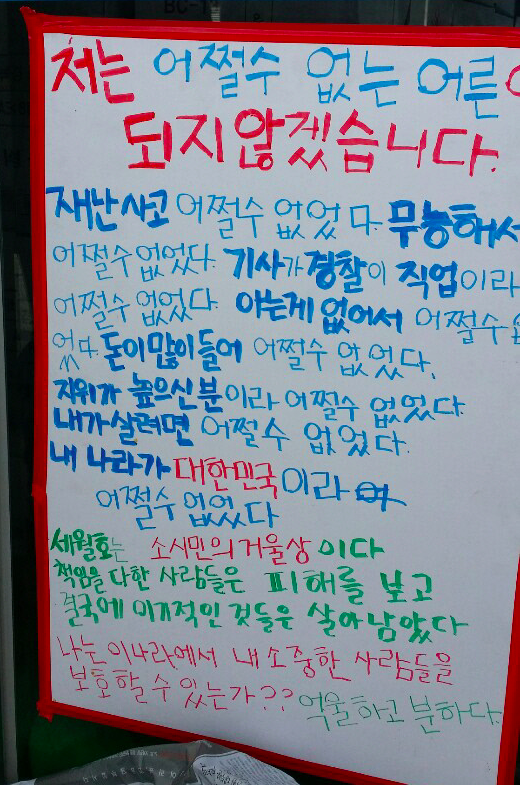 저는 어쩔수 없는 어른
되지않겠습니다.
재난사고 어쩔수 없었다. 무능해서
어쩔수없었다. 기사가 경찰이 직업이라
어쩔수 없었다. 아는게 없어서 어쩔수
었다. 돈이많이들어 어쩔수 없었다.
지위가 높으신분이라 어쩔수 없었다.
내가살려면 어쩔수 없었다.
내 나라가 대한민국이라
어쩔수없었다
세월호는 소시민의거울상이다
책임을 다한 사람들은 피해를 보고
결국에 이기적인 것들은 살아남았다
나는 이나라에서 내 소중한 사람들을
보호할 수 있는가?? 억울하고 분하다.